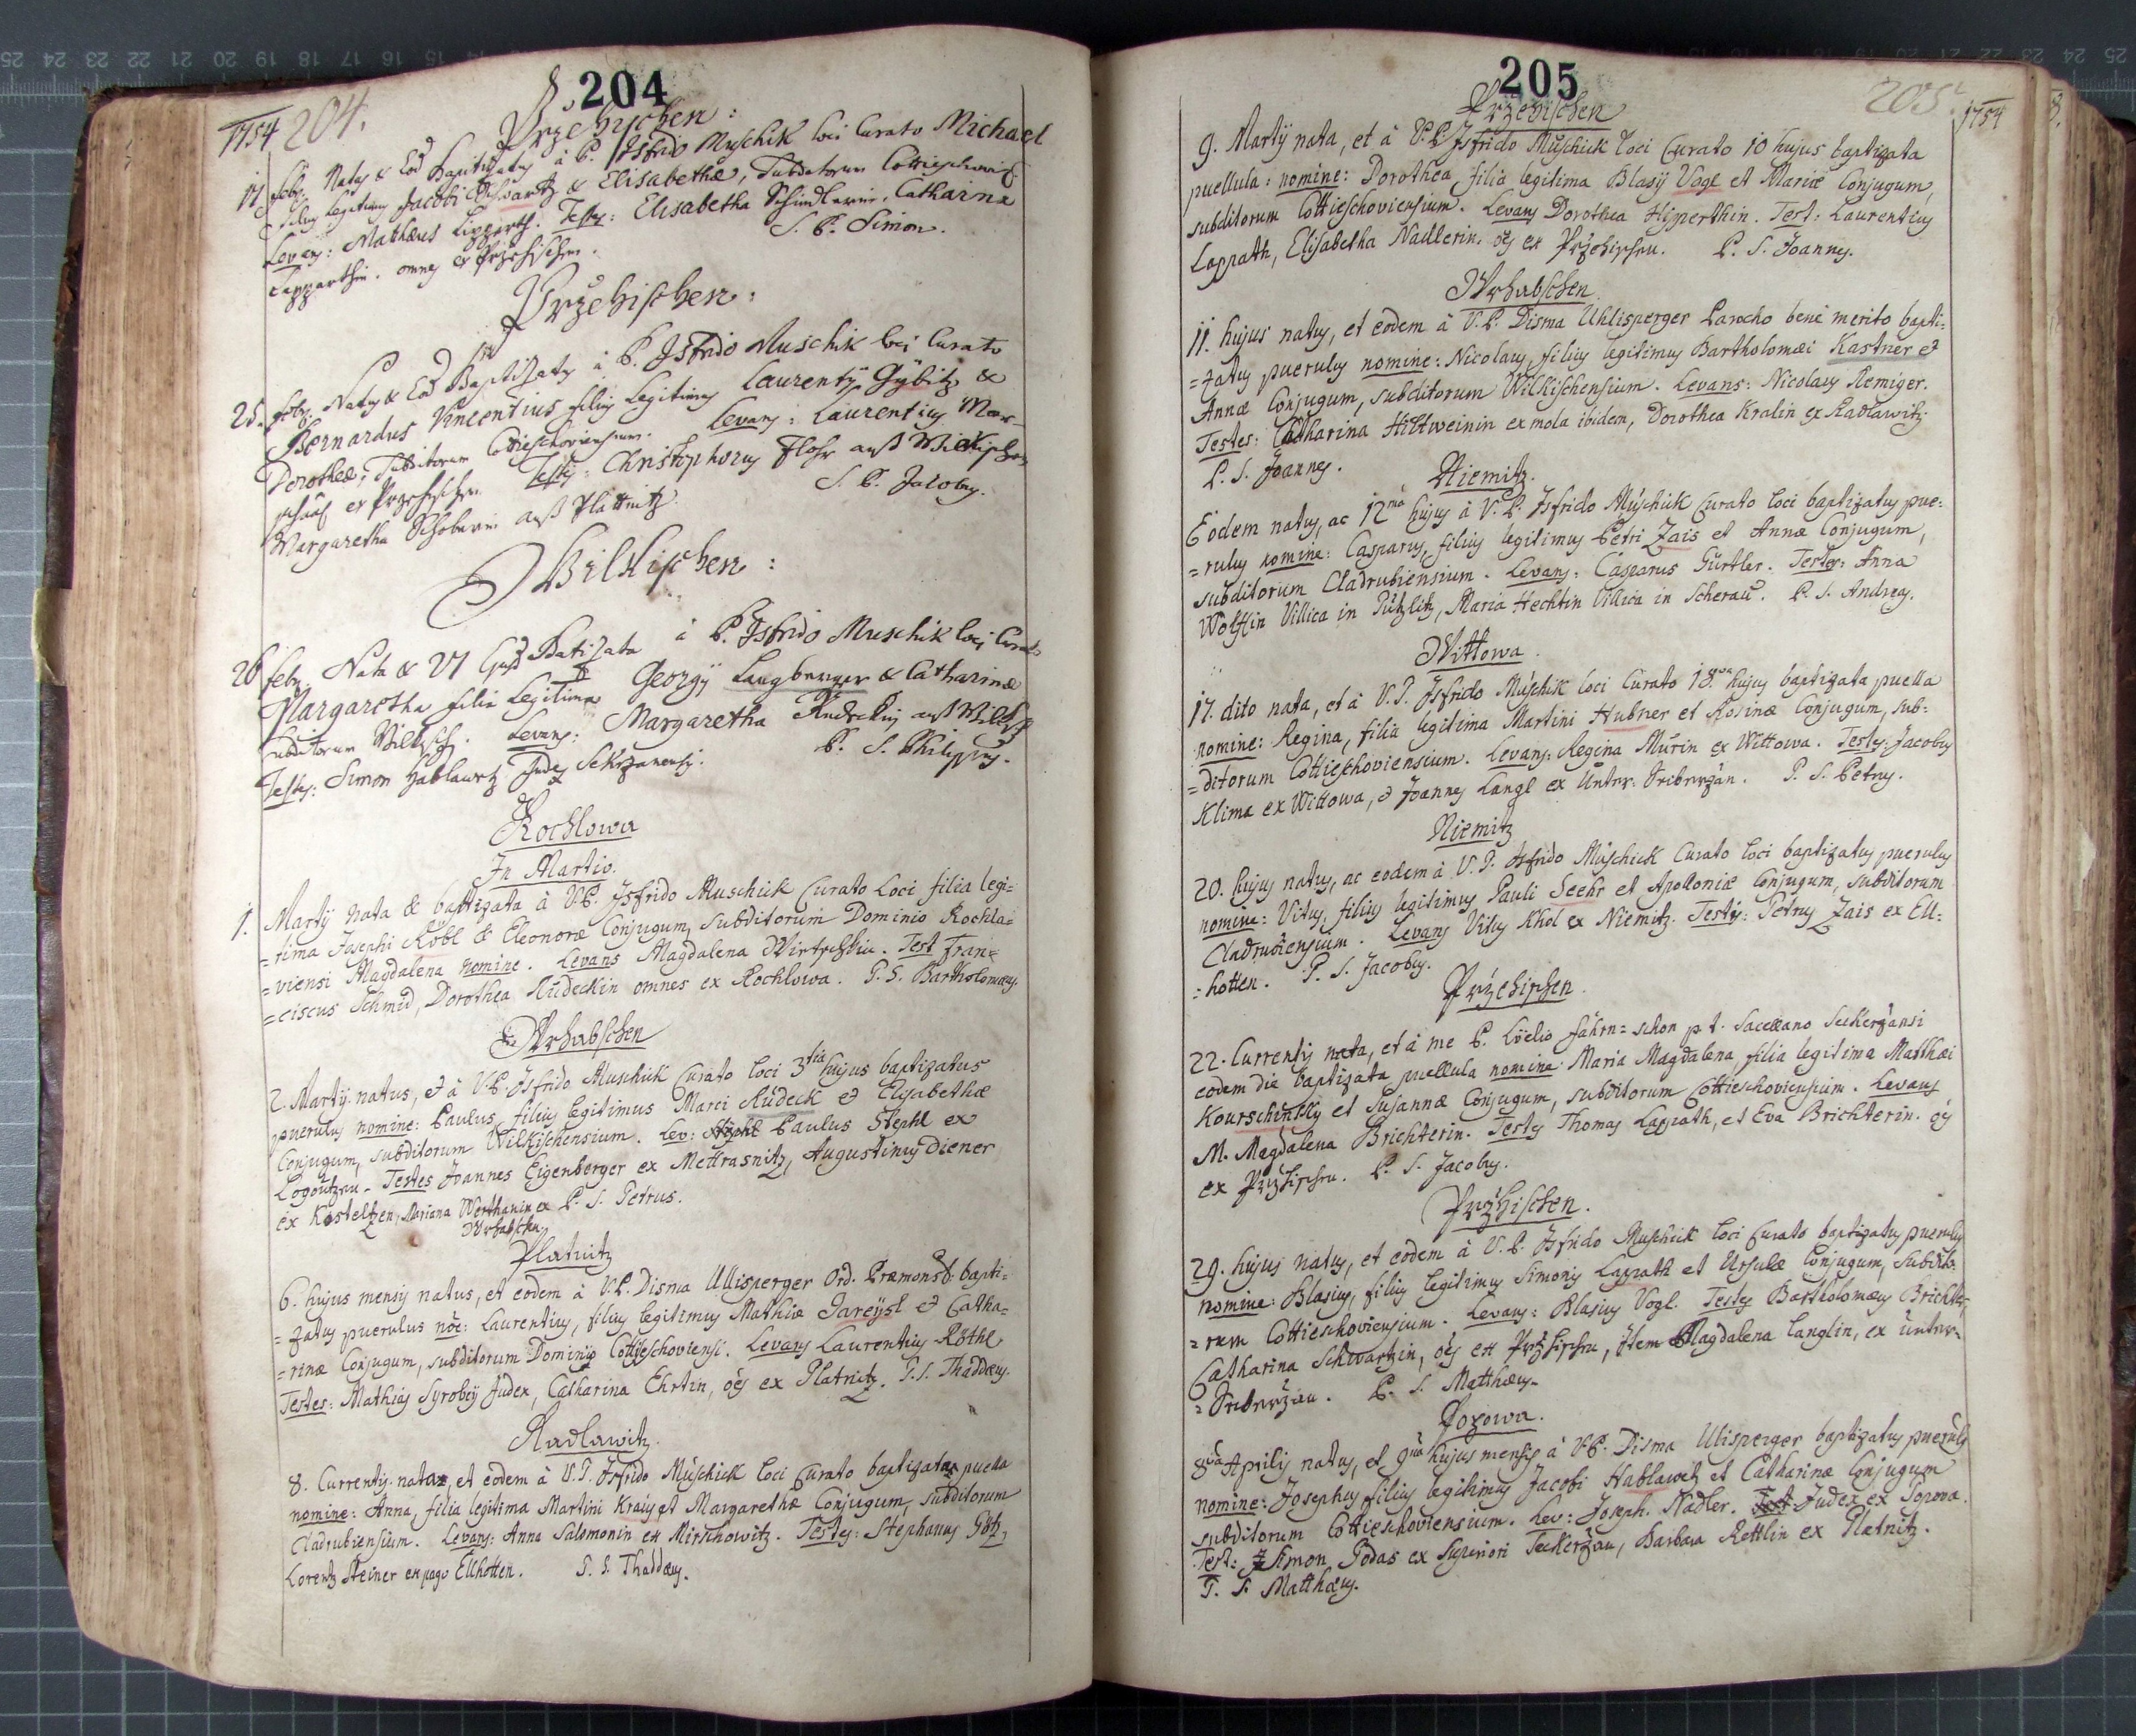 204
1754 204.
Przehischen:
17 Febr. Natus & Eod Baptizatus à P. Isfrido Muschik loci Curato Michael
filius legitimus Jacobi Schwartz & Elisabethæ, Subditorum Cottieschoviens.
Levans: Mathæus Lippert. Testes: Elisabetha Schindlerin, Catharina
Lapparthin. omnes ex Przehischen. S. P. Simon.
Przehischen:
25. febr. Natus & Eod Baptizatus à P. Isfrido Muschik loci Curato
Bernardus Vincentius filius Legitimus Laurentii Gÿbitz &
Dorotheæ, Subditorum Cottieschoviensium. Levans: Laurentius
ex Przehischen Testes: Christophorus Flohr auß Wilkischen
Margaretha Schoberin auß Plattnitz. S. P. Jacobus.
Wilkischen:
26 febr. Nata & 27 Baptizata à P. Isfrido Muschik loci Curato
Margaretha filia Legitima Georgÿ Langberger & Catharinæ
subditorum Wilkisch. Levans: Margaretha Rudeckin auß Wilkisch
Testes: Simon Hablawetz Judex P. S. Philippus.
Kochlowa
In Martio.
1. Martÿ nata & baptizata à V.P. Isfrido Muschick Curato Loci filia legi=
=tima Josephi Röbl & Eleonoræ Conjugum, Subditorum Dominio Kochla=
=viensi Magdalena nomine. Levans Magdalena Wirtschkin. Test Fran=
=ciscus Schmid, Dorothea Rudeckin omnes ex Kochlowa. P. S. Bartholomæus.
Wrhabschen
2. Martÿ natus, et à V.P. Isfrido Muschick Curato loci 3tia hujus baptizatus
puerulus nomine: Paulus, filius legitimus Marci Rudeck et Elisabethæ
Conjugum, subditorum Wilkischensium. Lev: Paulus Stephl ex
Logoutzen. Testes Joannes Eigenberger ex Mettrasnitz, Augustinus Diener
ex Kosteltzen, Mariana Werthanin ex P. S. Petrus.
Wrhabschen
Platnitz
6. hujus mensis natus, et eodem à V.P. Disma Ullisperger Ord. Præmonst. bapti=
=zatus puerulus noe: Laurentius, filius legitimus Mathiæ Pareÿsl et Catha=
=rinæ Conjugum, subditorum Dominio Cottieschoviensi. Levans Laurentius Röthl
Testes: Mathias Syrobÿ Judex, Catharina Ehrtin, oēs ex Platnitz. P. S. Thaddæus.
Radlawitz.
8. Currentis nata, et eodem à V.P. Isfrido Muschick loci Curato baptizata puella
nomine: Anna, filia legitima Martini Kraus et Margarethæ Conjugum, Subditorum
Cladrubiensium. Levans: Anna Salomonin ex Mirschowitz. Testes: Stephanus Götz,
Lorentz Steiner ex pago Ellhotten. P. S. Thaddæus.
205
205. 1754
Przehischen
9. Martÿ nata, et à V.P. Isfrido Muschick loci Curato 10 hujus baptizata
puellula: nomine: Dorothea filia legitima Blasÿ Vogl et Mariæ Conjugum,
subditorum Cottieschoviensium. Levans Dorothea Hipperthin. Test: Laurentius
Lappath, Elisabetha Nadlerin, oēs ex Przehischen. P. S. Joannes.
Wrhabschen
11. hujus natus, et eodem à V.P. Disma Uhlisperger Parocho bene merito bapti:
=zatus puerulus nomine: Nicolaus, filius legitimus Bartholomæi Kastner et
Annæ Conjugum, subditorum Wilkischensium. Levans: Nicolaus Remiger.
Testes: Catharina Hiltweinin ex mola ibidem, Dorothea Kralin ex Radlawitz.
P. S. Joannes.
Niemitz.
Eodem natus, ac 12ma hujus à V.P. Isfrido Muschick Curato loci baptizatus pue:
=rulus nomine: Casparus, filius legitimus Petri Zais et Annæ Conjugum,
subditorum Cladrubiensium. Levans: Casparus Gürtler. Testes: Anna
Wolffin Villica in Putzlitz, Maria Hechtin Villica in Scherau. P. S. Andreas.
Wittowa.
17. dito nata, et à V.P. Isfrido Muschik loci Curato 18va hujus baptizata puella
nomine: Regina, filia legitima Martini Hubner et Rosinæ Conjugum, sub:
=ditorum Cottieschoviensium. Levans: Regina Murin ex Wittowa. Testes: Jacobus
Klima ex Wittowa, et Joannes Langl ex Unter: P. S. Petrus.
Niemitz
20. hujus natus, ac eodem à V.P. Isfrido Muschick Curato loci baptizatus puerulus
nomine: Vitus, filius legitimus Pauli Seehr et Apolloniæ Conjugum, subditorum
Cladrubiensium. Levans Vitus Khol ex Niemitz. Testes: Petrus Zais ex Ell:
:hotten. P. S. Jacobus.
Przehischen.
22. Currentis nata, et à me P. Lælio Fähn=schon p.t. Sacellano Seckerzansi
eodem die baptizata puellula nomine: Maria Magdalena, filia legitima Matthæi
Kourschinsky et Susannæ Conjugum, subditorum Cottieschoviensium. Levans
M. Magdalena Brichterin. Testes Thomas Lappath, et Eva Brichterin. oēs
ex Przehischen. P. S. Jacobus.
Przhischen.
29. hujus natus, et eodem à V.P. Isfrido Muschick loci Curato baptizatus puerulus
nomine: Blasius, filius legitimus Simonis Lappath et Ursulæ Conjugum, subdito:
=rum Cottieschoviensium. Levans: Blasius Vogl. Testes Bartholomæus Brichter,
Catharina Schwartzin, oēs ex Przehischen, item Magdalena Langlin, ex unter=
P. S. Matthæus.
Popowa.
8va Aprilis natus, et 9na hujus mensis à V.P. Disma Ulisperger baptizatus puerulus
nomine: Josephus filius legitimus Jacobi Hablawetz et Catharinæ Conjugum
subditorum Cottieschoviensium. Lev: Joseph. Nadler. Judex ex Popova.
Test: Simon Godas ex Superiori Seckerzan, Barbara Rettlin ex Platnitz.
P. S. Matthæus.